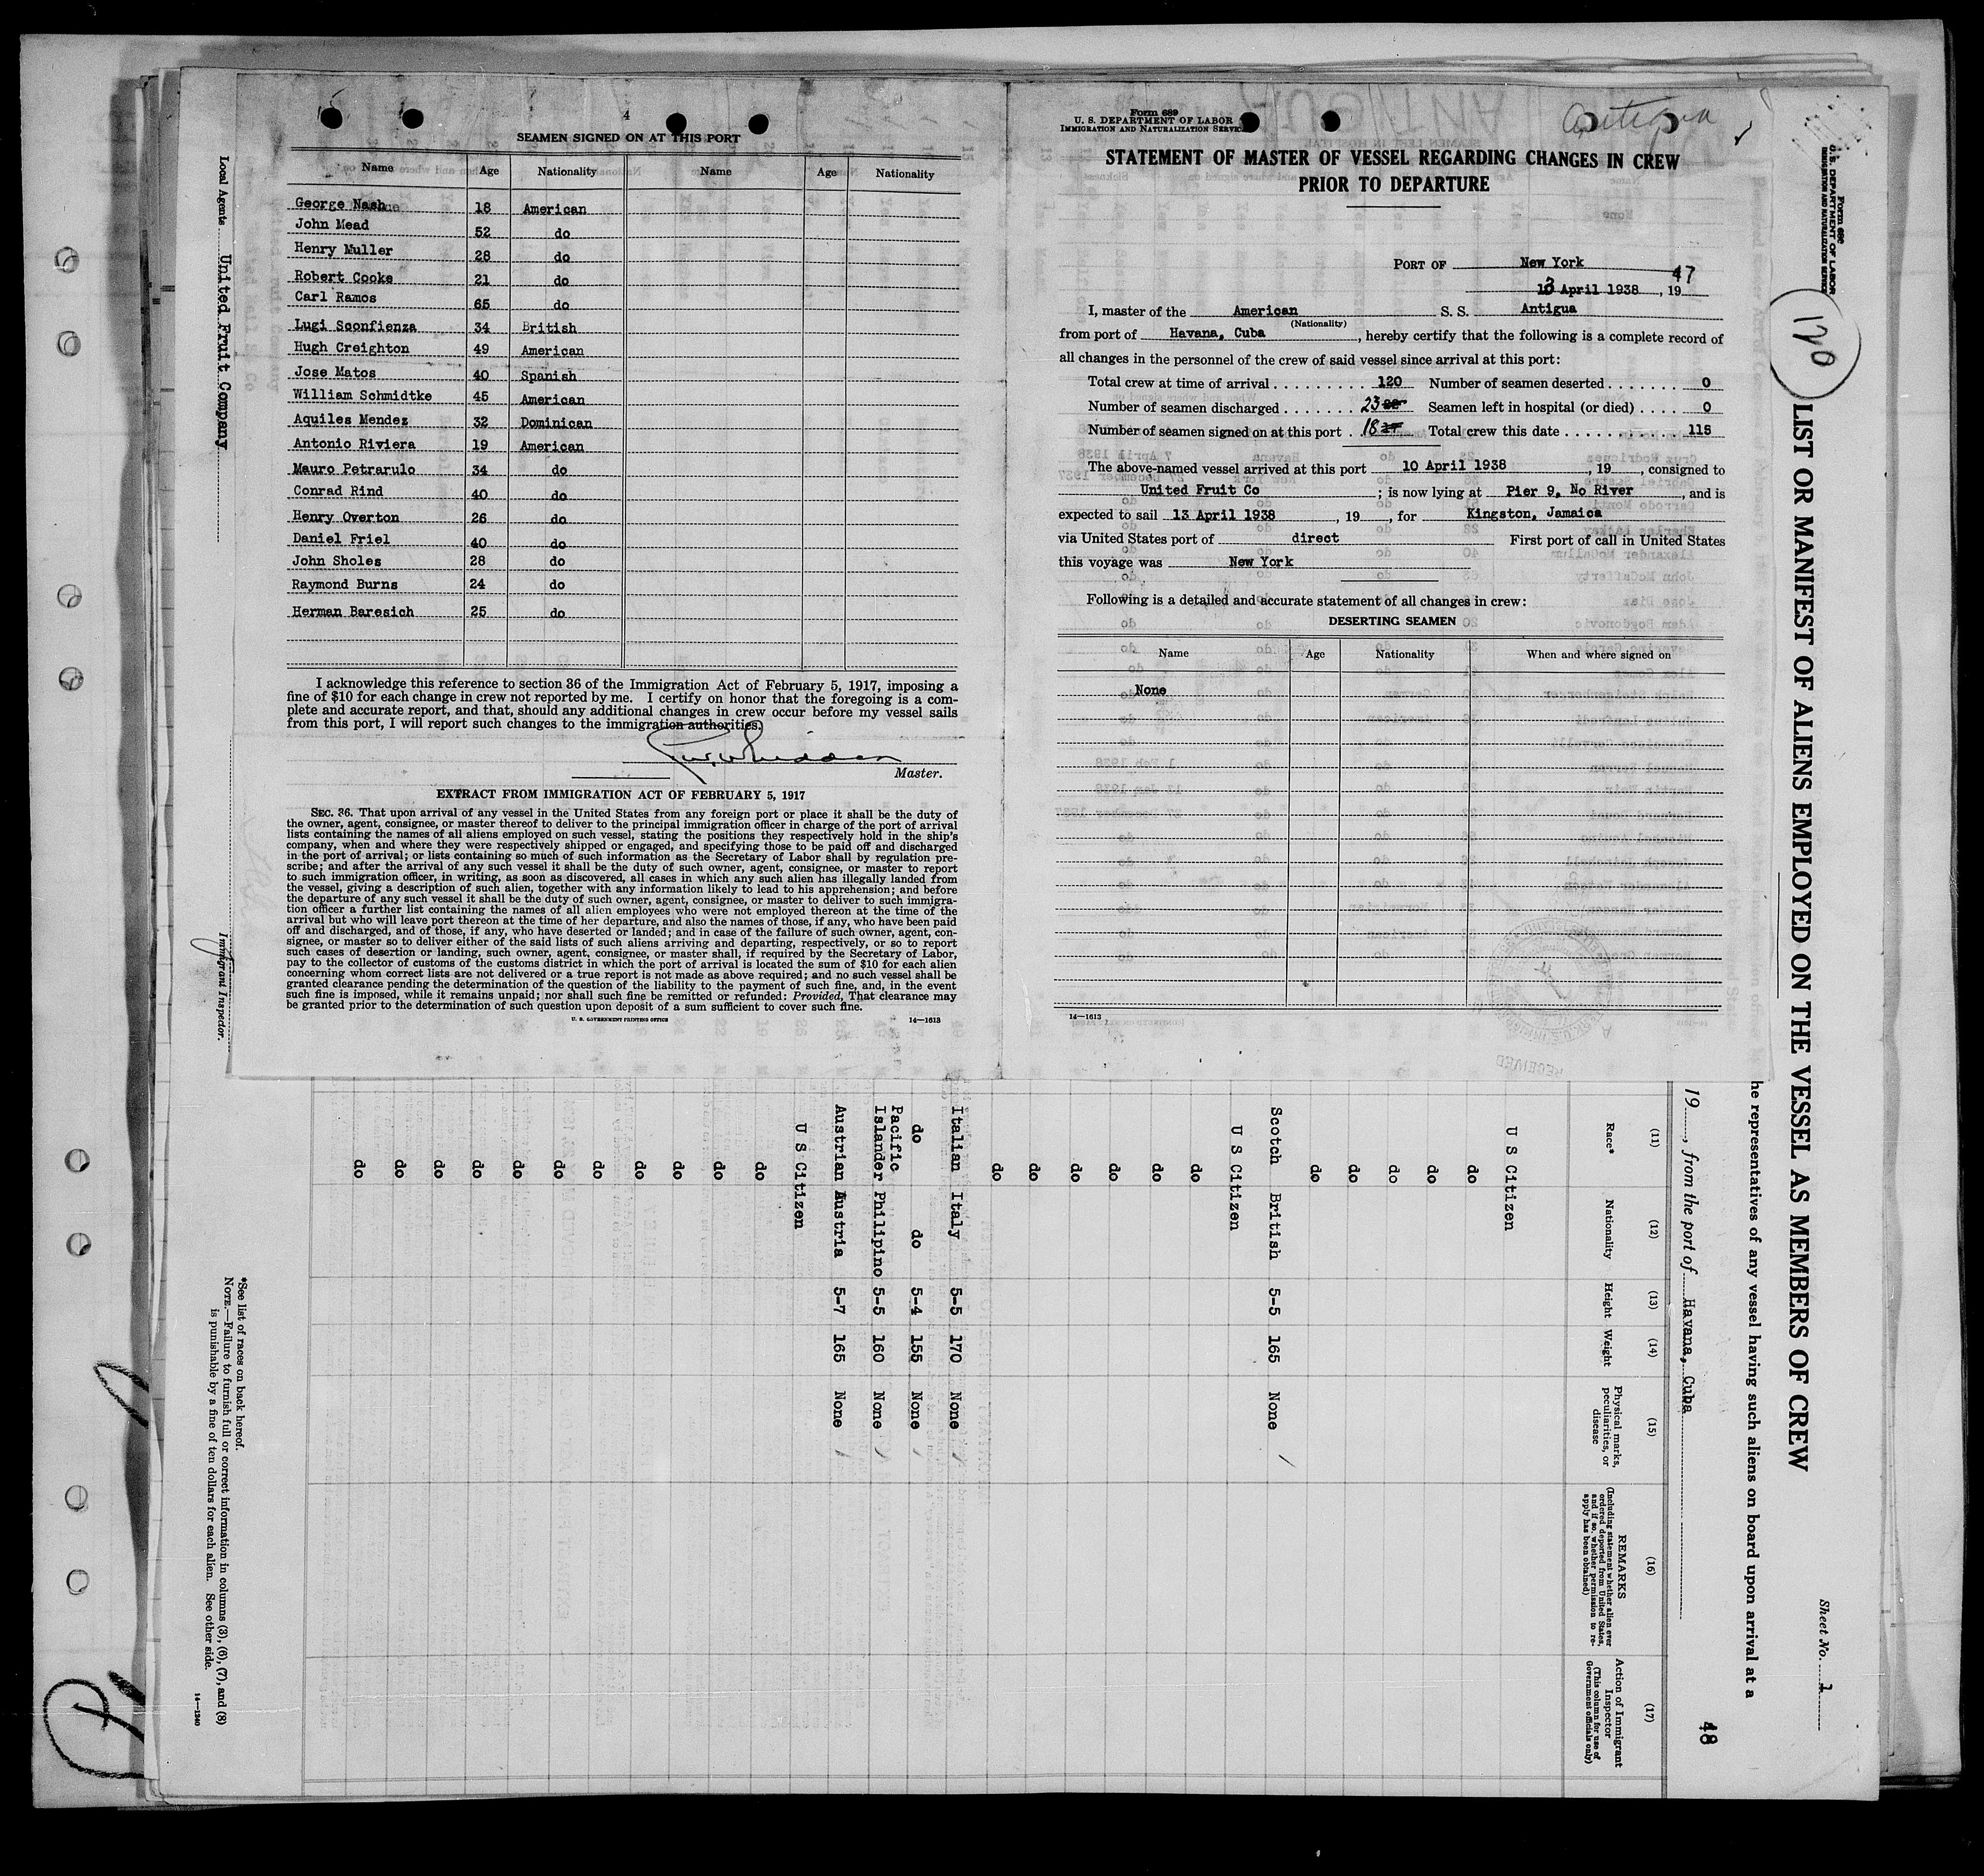 4
SEAMEN SIGNED ON AT THIS PORT
Name Age Nationality Name Age Nationality
George Nash 18 American
John Mead 52 do
Henry Muller 28 do
Robert Cooke 21 do
Carl Ramos 65 do
Lugi Sconfienza 34 British
Hugh Creighton 49 American
Jose Matos 40 Spanish
William Schmidtke 45 American
Aquiles Mendez 32 Dominican
Antonio Riviera 19 American
Mauro Petrarulo 34 do
Conrad Rind 40 do
Henry Overton 26 do
Daniel Friel 40 do
John Sholes 28 do
Raymond Burns 24 do
Herman Baresich 25 do
I acknowledge this reference to section 36 of the Immigration Act of February 5, 1917, imposing a
fine of $10 for each change in crew not reported by me. I certify on honor that the foregoing is a com-
plete and accurate report, and that, should any additional changes in crew occur before my vessel sails
from this port, I will report such changes to the immigration authorities.
Master.
EXTRACT FROM IMMIGRATION ACT OF FEBRUARY 5, 1917
SEC. 36. That upon arrival of any vessel in the United States from any foreign port or place it shall be the duty of
the owner, agent, consignee, or master thereof to deliver to the principal immigration officer in charge of the port of arrival
lists containing the names of all aliens employed on such vessel, stating the positions they respectively hold in the ship's
company, when and where they were respectively shipped or engaged, and specifying those to be paid off and discharged
in the port of arrival; or lists containing so much of such information as the Secretary of Labor shall by regulation pre-
scribe; and after the arrival of any such vessel it shall be the duty of such owner, agent, consignee, or master to report
to such immigration officer, in writing, as soon as discovered, all cases in which any such alien has illegally landed from
the vessel, giving a description of such alien, together with any information likely to lead to his apprehension; and before
the departure of any such vessel it shall be the duty of such owner, agent, consignee, or master to deliver to such immigra-
tion officer a further list containing the names of all alien employees who were not employed thereon at the time of the
arrival but who will leave port thereon at the time of her departure, and also the names of those, if any, who have been paid
off and discharged, and of those, if any, who have deserted or landed; and in case of the failure of such owner, agent, con-
signee, or master so to deliver either of the said lists of such aliens arriving and departing, respectively, or so to report
such cases of desertion or landing, such owner, agent, consignee, or master shall, if required by the Secretary of Labor,
pay to the collector of customs of the customs district in which the port of arrival is located the sum of $10 for each alien
concerning whom correct lists are not delivered or a true report is not made as above required; and no such vessel shall be
granted clearance pending the determination of the question of the liability to the payment of such fine, and, in the event
such fine is imposed, while it remains unpaid; nor shall such fine be remitted or refunded: Provided, That clearance may
be granted prior to the determination of such question upon deposit of a sum sufficient to cover such fine.
U. S. GOVERNMENT PRINTING OFFICE 14—1613
Form 689
U. S. DEPARTMENT OF LABOR
IMMIGRATION AND NATURALIZATION SERVICE
Antigua
STATEMENT OF MASTER OF VESSEL REGARDING CHANGES IN CREW
PRIOR TO DEPARTURE
PORT OF New York
47
13 April 1938, 19
I, master of the American S. S. Antigua
(Nationality)
from port of Havana, Cuba, hereby certify that the following is a complete record of
all changes in the personnel of the crew of said vessel since arrival at this port:
Total crew at time of arrival 120 Number of seamen deserted 0
Number of seamen discharged 23 Seamen left in hospital (or died) 0
Number of seamen signed on at this port 18 Total crew this date 115
The above-named vessel arrived at this port 10 April 1938, 19, consigned to
United Fruit Co; is now lying at Pier 9, No River, and is
expected to sail 13 April 1938, 19, for Kingston, Jamaica
via United States port of direct First port of call in United States
this voyage was New York
Following is a detailed and accurate statement of all changes in crew:
DESERTING SEAMEN
Name Age Nationality When and where signed on
None
14—1613
RECEIVED
Form 680
U.S. DEPARTMENT OF LABOR
IMMIGRATION AND NATURALIZATION SERVICE
120
LIST OR MANIFEST OF ALIENS EMPLOYED ON THE VESSEL AS MEMBERS OF CREW
Sheet No. 1
he representatives of any vessel having such aliens on board upon arrival at a
48
19, from the port of Havana, Cuba
(11) (12) (13) (14) (15) (16) (17)
Race* Nationality Height Weight Physical marks, peculiarities, or disease REMARKS (Including statement whether alien ever ordered deported from United States, and if so, whether permission to re-apply has been obtained) Action of Immigrant Inspector (This column for use of Government officials only)
U S Citizen
do
do
do
do
do
Scotch British 5-5 165 None
U S Citizen
do
do
do
do
do
do
Italian Italy 5-5 170 None
do do 5-4 155 None
Pacific Islander Philipino 5-5 160 None
Austrian Austria 5-7 165 None
U S Citizen
do
do
do
do
do
do
do
do
do
do
do
*See list of races on back hereof.
NOTE.—Failure to furnish full or correct information in columns (3), (6), (7), and (8)
is punishable by a fine of ten dollars for each alien. See other side.
14—1240
Local Agents United Fruit Company
Immigrant Inspector.